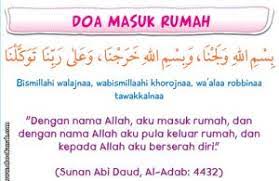 DOA MASUK RUMAH
بِسْمِ اللهِ وَلَجْنَا، وَبِسْمِ اللهِ خَرَجْنَا، وَعَلَى رَبِّنَا تَوَكَّلْنَا
Bismillahi walajnaa, wabismillaahi khorojnaa, wa'alaa robbinaa
tawakkalnaa
"Dengan nama Allah, aku masuk rumah, dan
dengan nama Allah aku pula keluar rumah, dan
kepada Allah aku berserah diri."
(Sunan Abi Daud, Al-Adab: 4432)